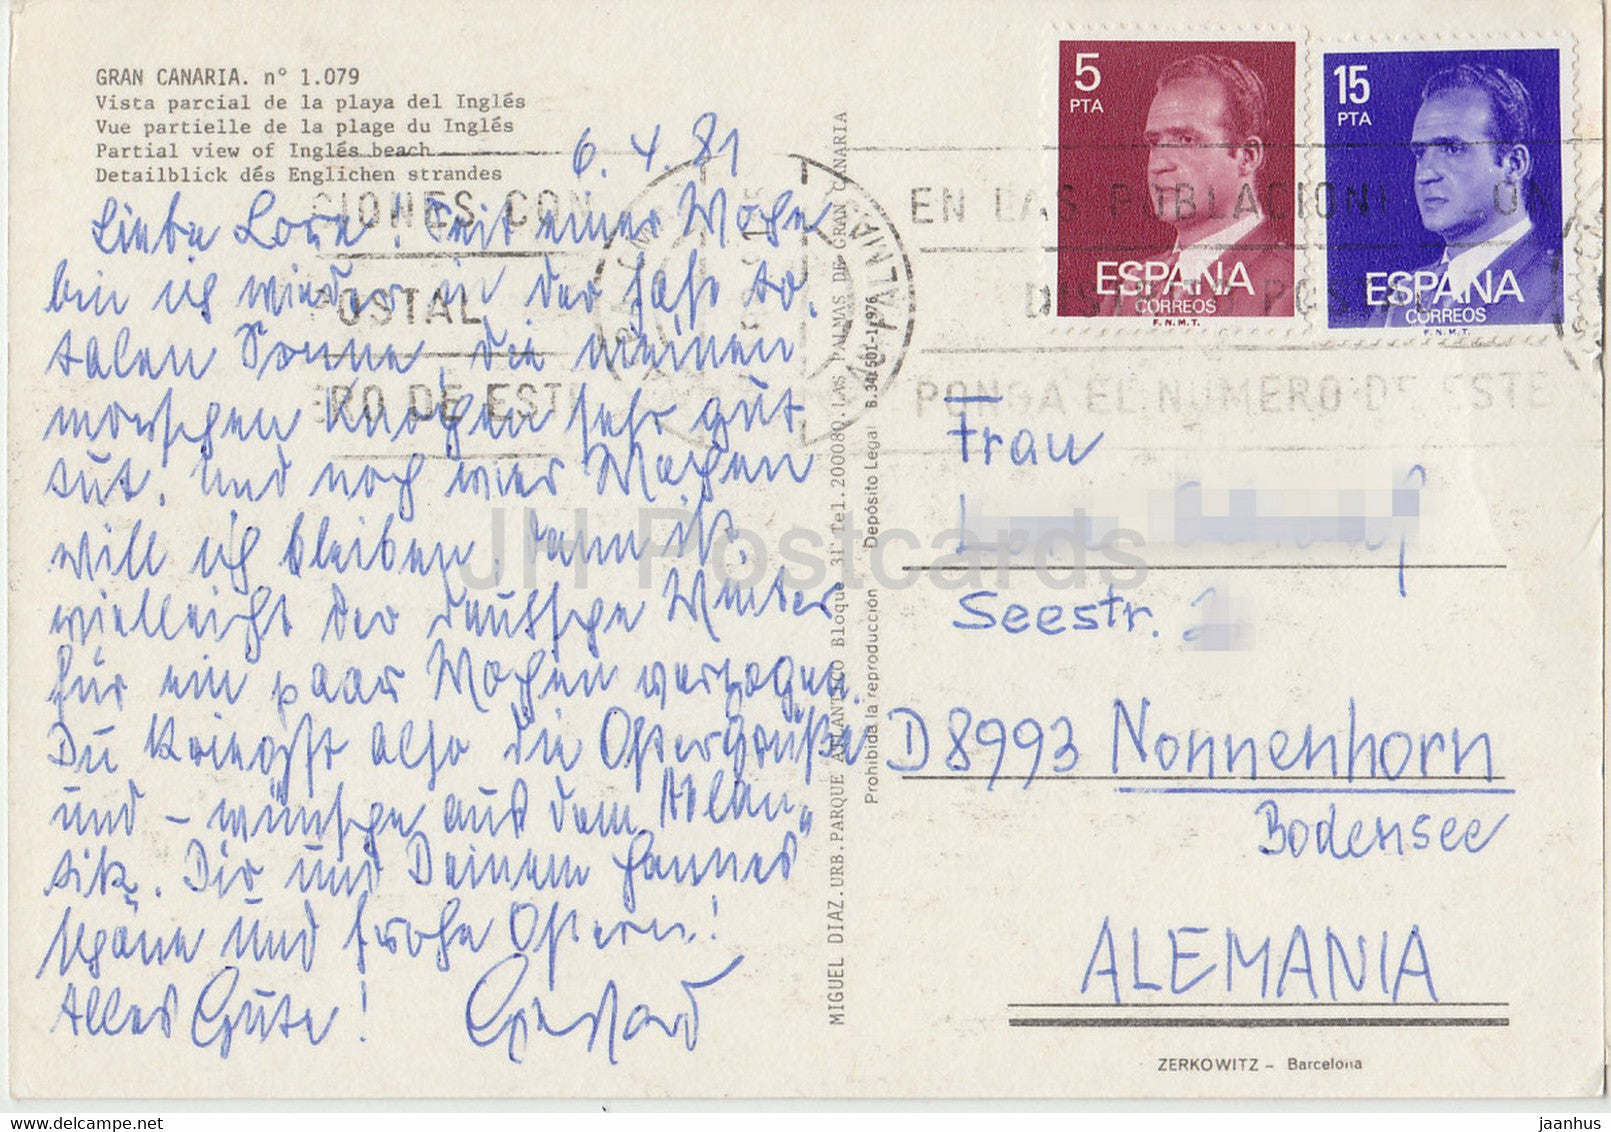 GRAN CANARIA. n° 1.079
Vista parcial de la playa del Inglés
Vue partielle de la plage du Inglés
Partial view of Inglés beach
Detailblick dés Englichen strandes
6.4.81
Liebe Lore! Seit einer Woche
bin ich wieder in der fast to-
talen Sonne, die meinen
morschen Knochen sehr gut
tut. Und noch vier Wochen
will ich bleiben, dann ist
vielleicht der deutsche Winter
für ein paar Wochen verzogen.
Du kriegst also die Ostergrüße
und - wünsche aus dem Atlan-
tik. Dir und Deinem Hannes
schöne und frohe Ostern!
Alles Gute! Gerhard
MIGUEL DIAZ.URB.PARQUE ATLANTICO Bloque 31 Tel.200080.LAS PALMAS DE GRAN CANARIA
Prohibida la reproducción Depósito Legal B.34.501-1976
5
PTA
ESPAÑA
CORREOS
F.N.M.T.
15
PTA
ESPAÑA
CORREOS
F.N.M.T.
CIONES CON
POSTAL
ERO DE ESTE
EN LAS POBLACIONE
DISTRITO POSTAL
PONGA EL NUMERO DE ESTE
Frau
Seestr.
D 8993 Nonnenhorn
Bodensee
ALEMANIA
ZERKOWITZ - Barcelona
JH Postcards
jaanhus
delcampe.net